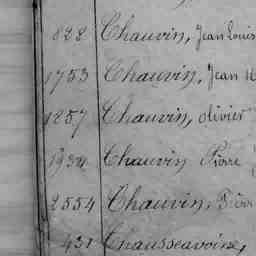 828 Chauvin, Jean Louis
1753 Chauvin, Jean
1257 Chauvin, Olivier
1934 Chauvin Pierre
2554 Chauvin,
431 Chausseavoine,